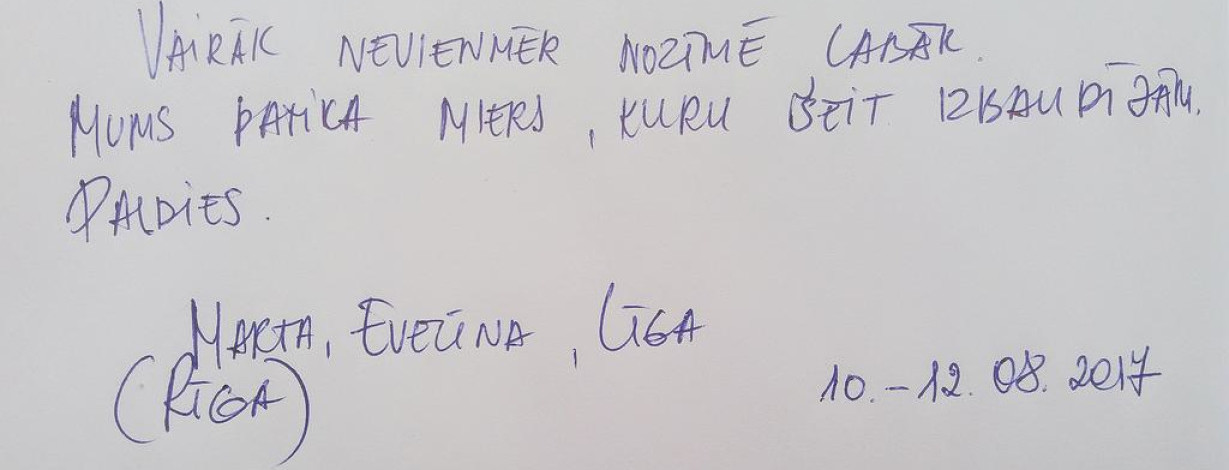 VAIRĀK NEVIENMĒR NOZĪMĒ LABĀK.
MUMS PATIKA MIERS, KURU ŠEIT IZBAUDĪJĀM.
PALDIES.
MARTA, EVELĪNA, LĪGA
(RĪGA)
10.-12. 08. 2017